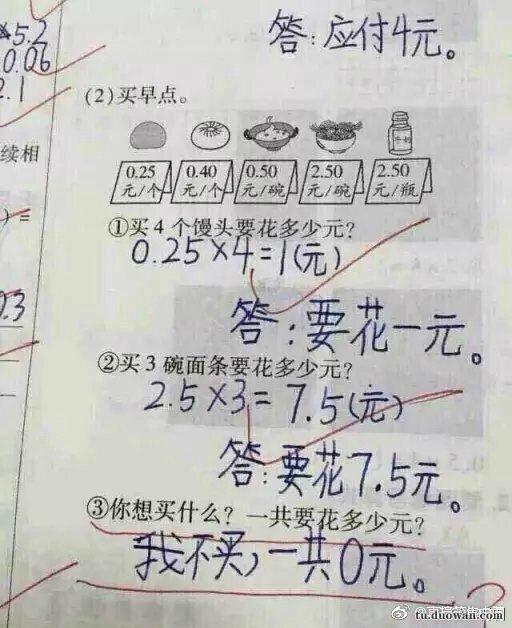 ×5.2
0.06
2.1
答:应付4元。
(2)买早点。
续相
0.25 0.40 0.50 2.50 2.50
元/个 元/个 元/碗 元/碗 元/瓶
①买4个馒头要花多少元?
0.25×4=1(元)
0.3
答:要花一元。
②买3碗面条要花多少元?
2.5×3=7.5(元)
答:要花7.5元。
③你想买什么?一共要花多少元?
我不买,一共0元。
tu.duowan.com